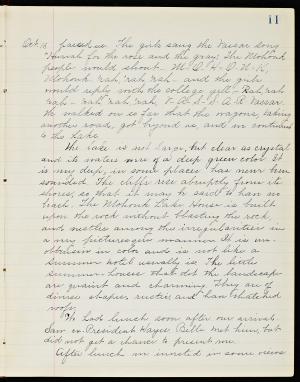 11
Oct. 18 passed us. The girls sang the Vassar song
"Hurrah for the rose and the gray," The Mohonk
people would shout M-O-H-O-N-K,
Mohonk 'rah, 'rah, 'rah - and the girls
would reply with the college yell - 'Rah, 'rah
'rah - 'rah, 'rah, 'rah, V-A-S-S-A-R Vassar.
We walked on so far that the wagons, taking
another road, got beyond us, and we continued
to the Lake.
The lake is not large, but clear as crystal
and its waters are of a deep green color. It
is very deep, in some places has never been
sounded. The cliffs rise abruptly from its
shores, so that it may be said to have no
beach. The Mohonk Lake House is built
upon the rock without blasting the rock,
and nestles among the irregularities in
a very picturesque manner. It is un-
obtrusive in color and is not like a
summer hotel usually is. The little
summer-houses that dot the landscape
are quaint and charming. They are of
divers shapes, rustic, and have thatched
roofs.
We had lunch soon after our arrival.
Saw ex-President Hayes. Belle met him, but
did not get a chance to present me.
After lunch we invested in some views